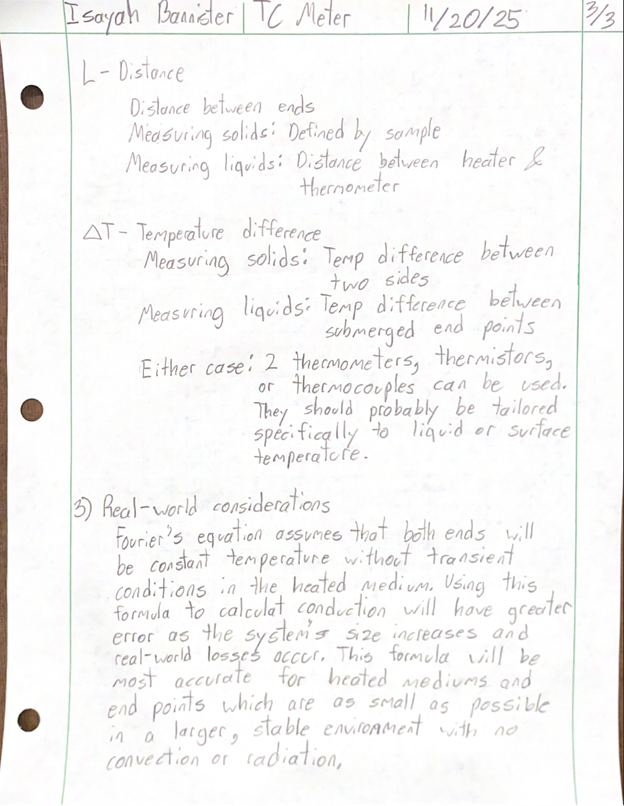 Isayah Bannister | TC Meter | 11/20/25 | 3/3
L - Distance
Distance between ends
Measuring solids: Defined by sample
Measuring liquids: Distance between heater &
thermometer
ΔT - Temperature difference
Measuring solids: Temp difference between
two sides
Measuring liquids: Temp difference between
submerged end points
Either case: 2 thermometers, thermistors,
or thermocouples can be used.
They should probably be tailored
specifically to liquid or surface
temperature.
3) Real-world considerations
Fourier's equation assumes that both ends will
be constant temperature without transient
conditions in the heated medium. Using this
formula to calculat conduction will have greater
error as the system's size increases and
real-world losses occur. This formula will be
most accurate for heated mediums and
end points which are as small as possible
in a larger, stable environment with no
convection or radiation.